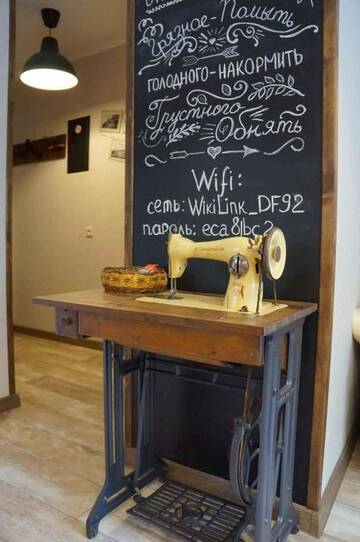 Грязное-Помыть
ГОЛОДНОГО-НАКОРМИТЬ
Грустного
Обнять
Wifi:
сеть: WikiLink_DF92
пароль: eca81bc2